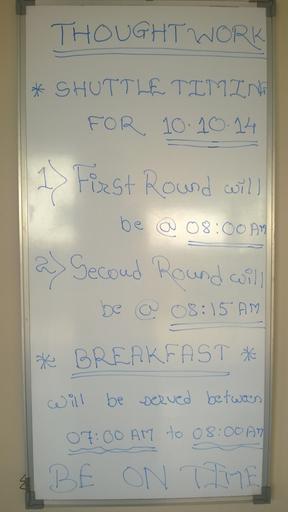 THOUGHTWORK
* SHUTTLE TIMING
FOR 10.10.14
1) First Round will
be @ 08:00 AM
2) Second Round will
be @ 08:15 AM
* BREAKFAST *
will be served between
07:00 AM to 08:00 AM
BE ON TIME